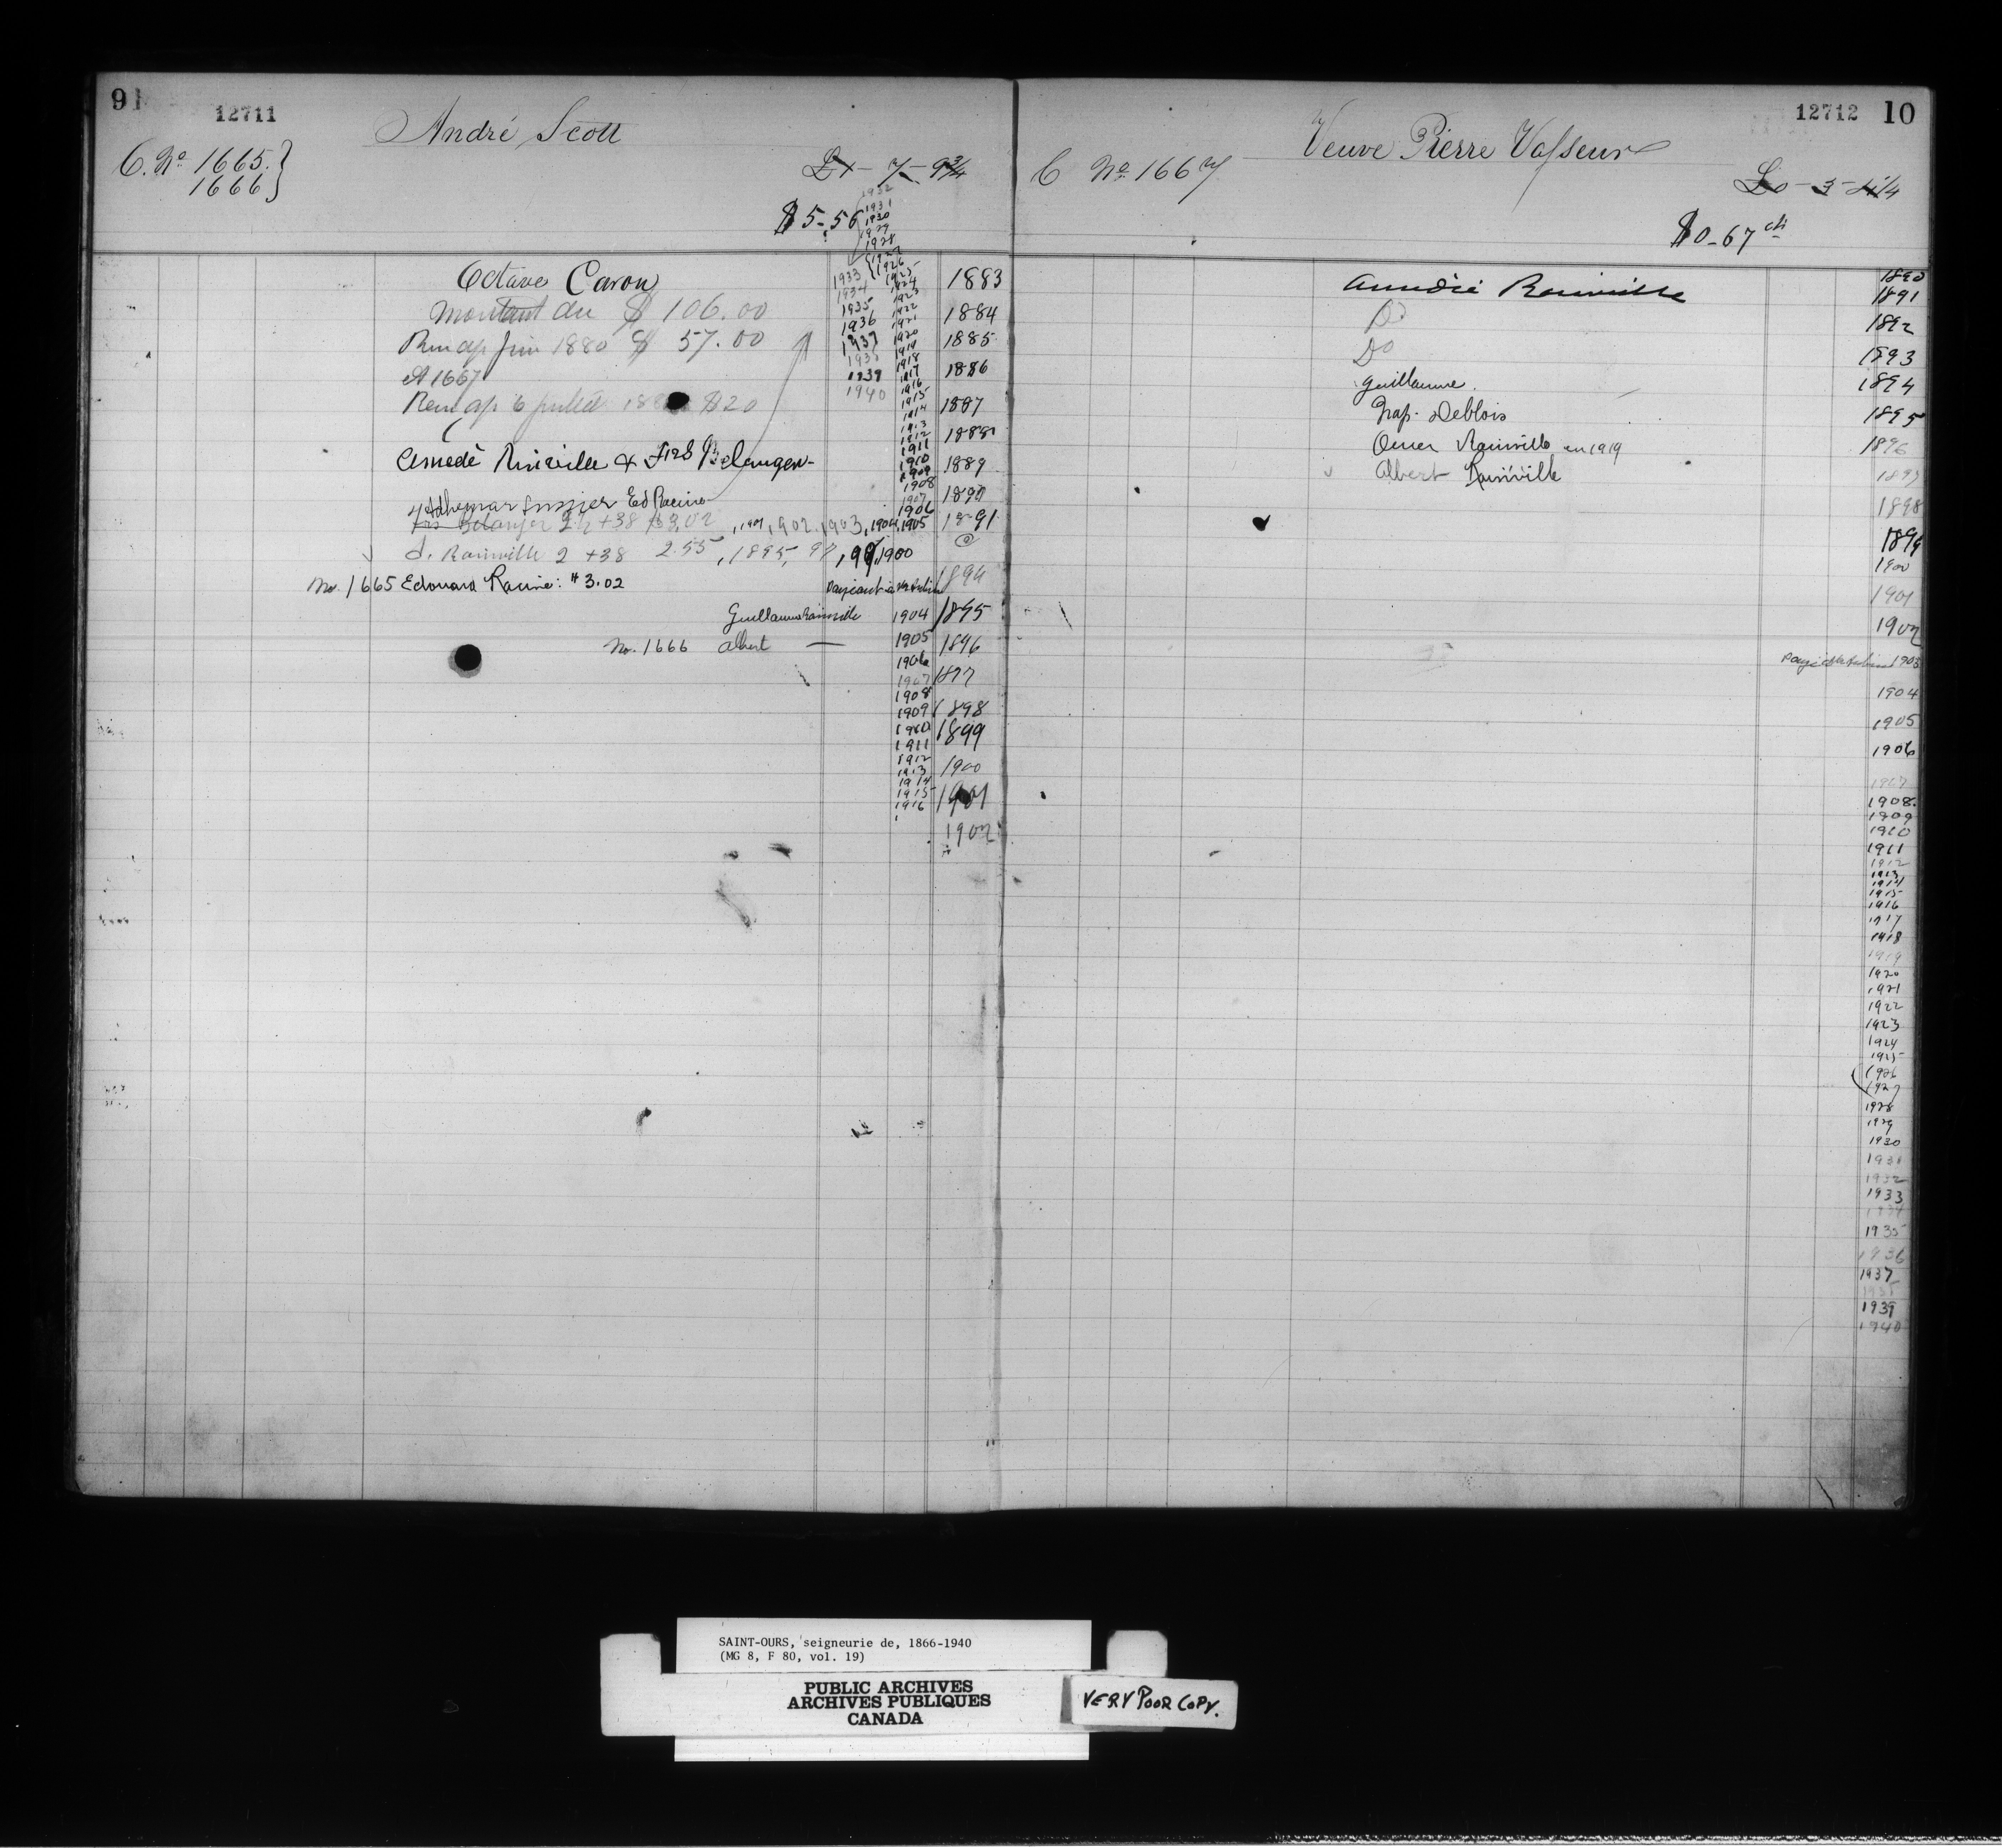 9
12711
André Scott
C. No 1665.
1666
$5-56
1932
1931
1930
1929
1928
1927
1926
1925
1924
1923
1922
1921
1920
1919
1918
1917
1916
1915
1914
1913
1912
1911
1910
1909
1908
1907
1906
1933
1934
1935
1936
1937
1938
1939
1940
Octave Caron 1883
Montant du $106.00 1884
$57.00 1885
1886
Et 1667
$20 1887
1888
Amedé Rinville & Frs Belanger 1889
Adhemar Lussier Ed Racine 1890
Frs Belanger 2 +38 , 1901, 1902, 1903, 1904, 1905 1891
d. Rainville 2 +38 2.55 , 1895, 97, 99, 1900
No. 1665 Edouard Racine: $3.02 1894
Guillaume Rainville 1904 1895
No. 1666 Albert — 1905 1896
1906
1907 1897
1908
1909 1898
1910 1899
1911
1912
1913 1900
1914
1915 1901
1916
1902
12712 10
Veuve Pierre Vasseur
C No. 1667
$0-67 cts
1890
Amedée Rainville 1891
Do 1892
Do 1893
Guillaume. 1894
Nap. Deblois 1895
Omer Rainville en 1919 1896
Albert Rainville 1897
1898
1899
1900
1901
1902
1903
1904
1905
1906
1907
1908.
1909
1910
1911
1912
1913
1914
1915
1916
1917
1918
1919
1920
1921
1922
1923
1924
1925
1926
1927
1928
1929
1930
1931
1932
1933
1934
1935
1936
1937
1938
1939
1940
SAINT-OURS, seigneurie de, 1866-1940
(MG 8, F 80, vol. 19)
PUBLIC ARCHIVES
ARCHIVES PUBLIQUES
CANADA
VERY POOR COPY.